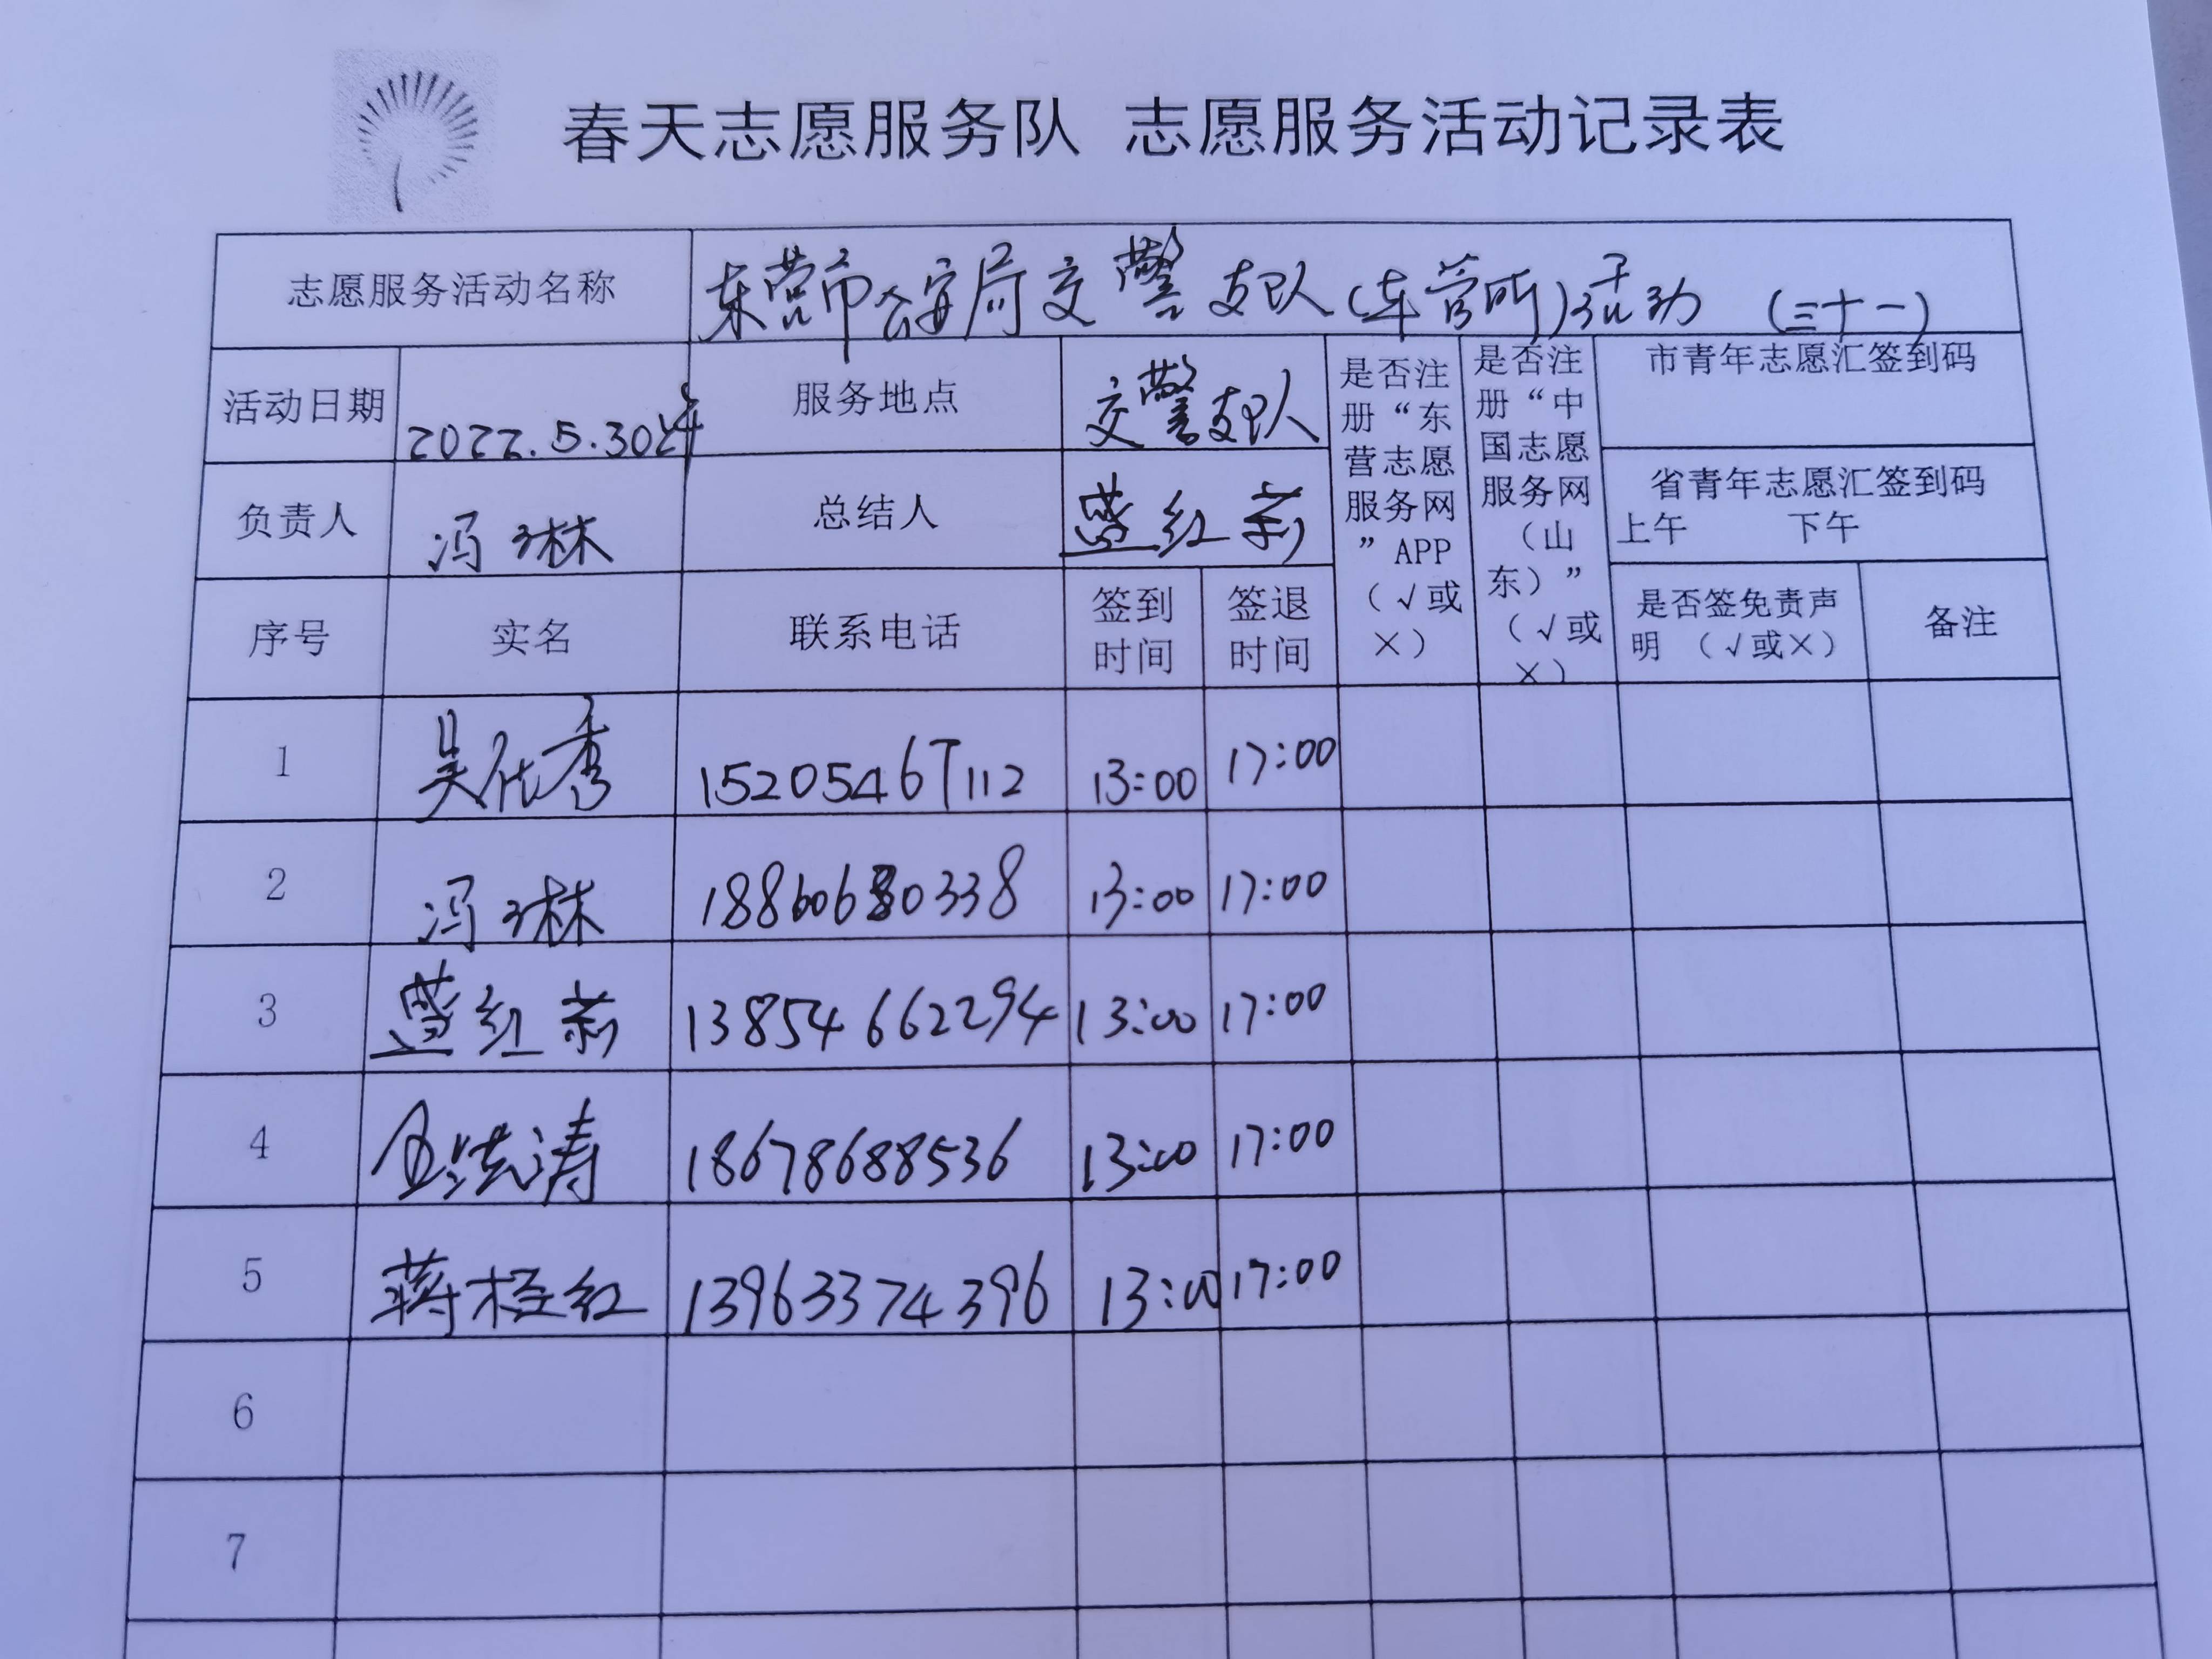 春天志愿服务队 志愿服务活动记录表
志愿服务活动名称 东营市公安局交警支队(车管所)活动 (三十一)
活动日期 2022.5.30下午 服务地点 交警支队
负责人 冯琳 总结人 红莉
是否注册“东营志愿服务网”APP(√或×)
是否注册“中国志愿服务网(山东)”(√或×)
市青年志愿汇签到码
省青年志愿汇签到码
上午 下午
序号 实名 联系电话 签到时间 签退时间 是否签免责声明 (√或×) 备注
1 吴代秀 15205467112 13:00 17:00
2 冯琳 18860680338 13:00 17:00
3 红莉 13854662294 13:00 17:00
4 涛 18678688536 13:00 17:00
5 蒋桂红 13963374396 13:00 17:00
6
7